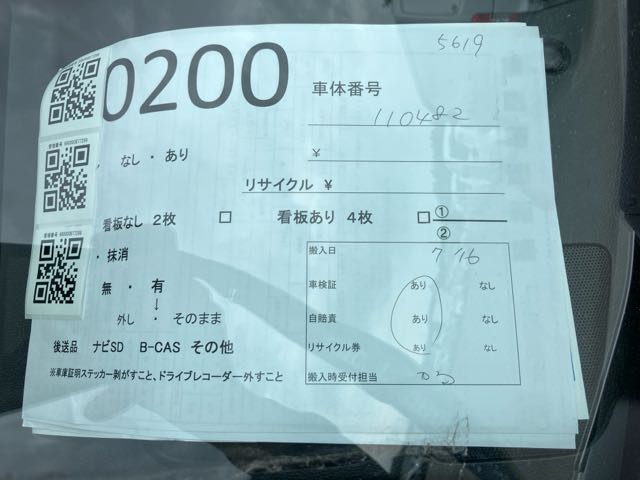 5619
0200
車体番号
110482
なし ・ あり ¥
リサイクル ¥
看板なし 2枚 □ 看板あり 4枚 □ ①
②
・ 抹消
無 ・ 有
↓
外し ・ そのまま
後送品 ナビSD B-CAS その他
※車庫証明ステッカー剥がすこと、ドライブレコーダー外すこと
搬入日 7/16
車検証 あり なし
自賠責 あり なし
リサイクル券 あり なし
搬入時受付担当